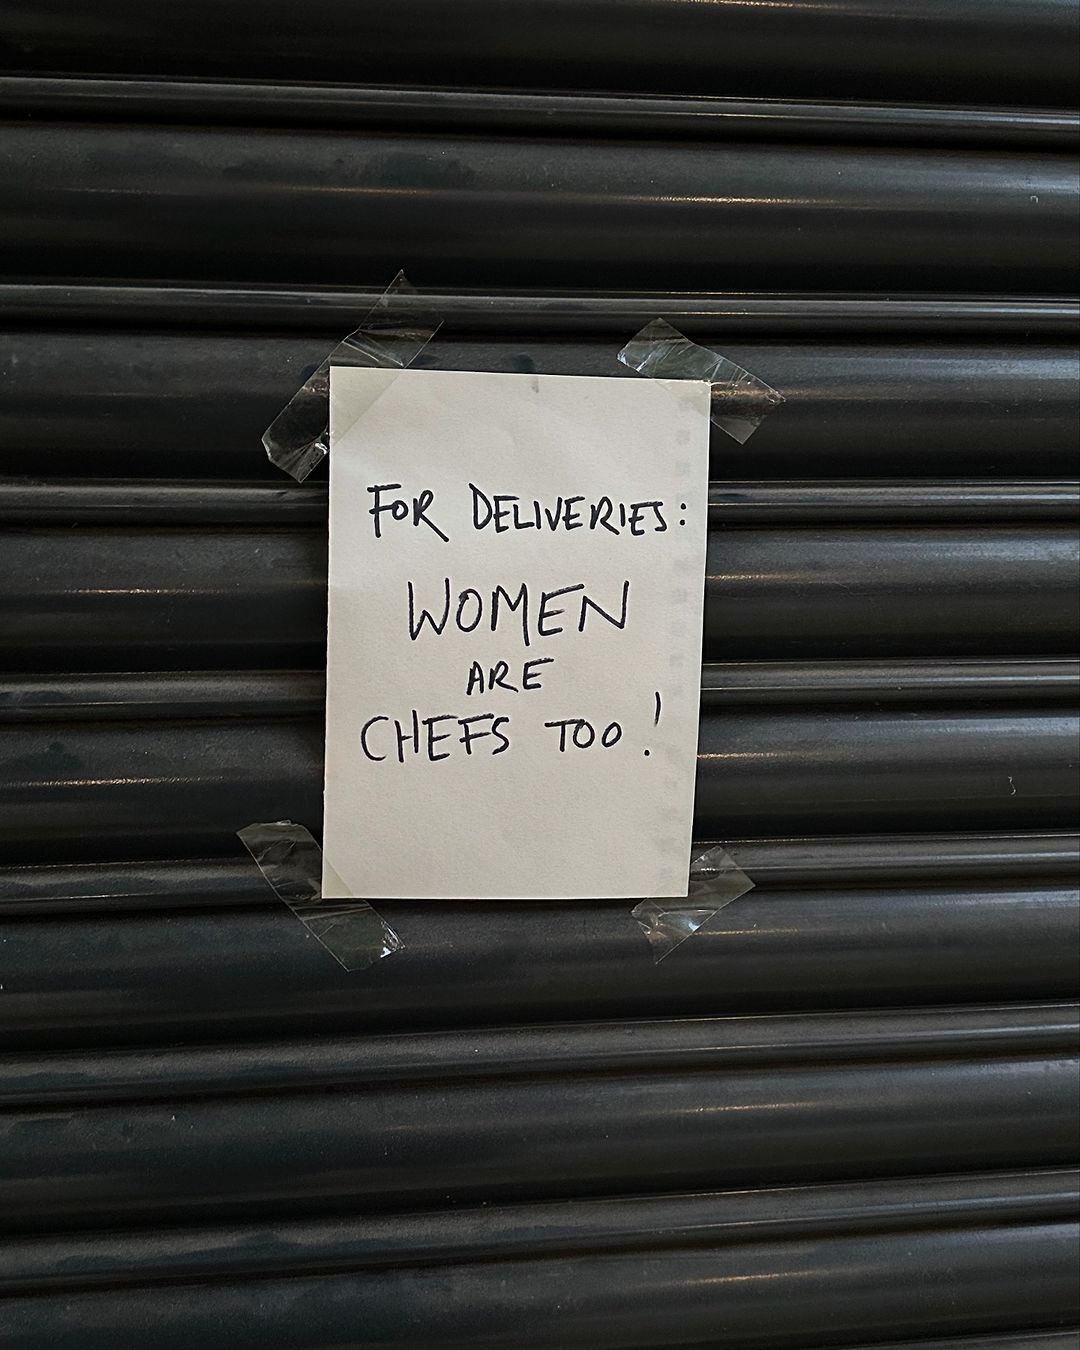 FOR DELIVERIES:
WOMEN
ARE
CHEFS TOO!